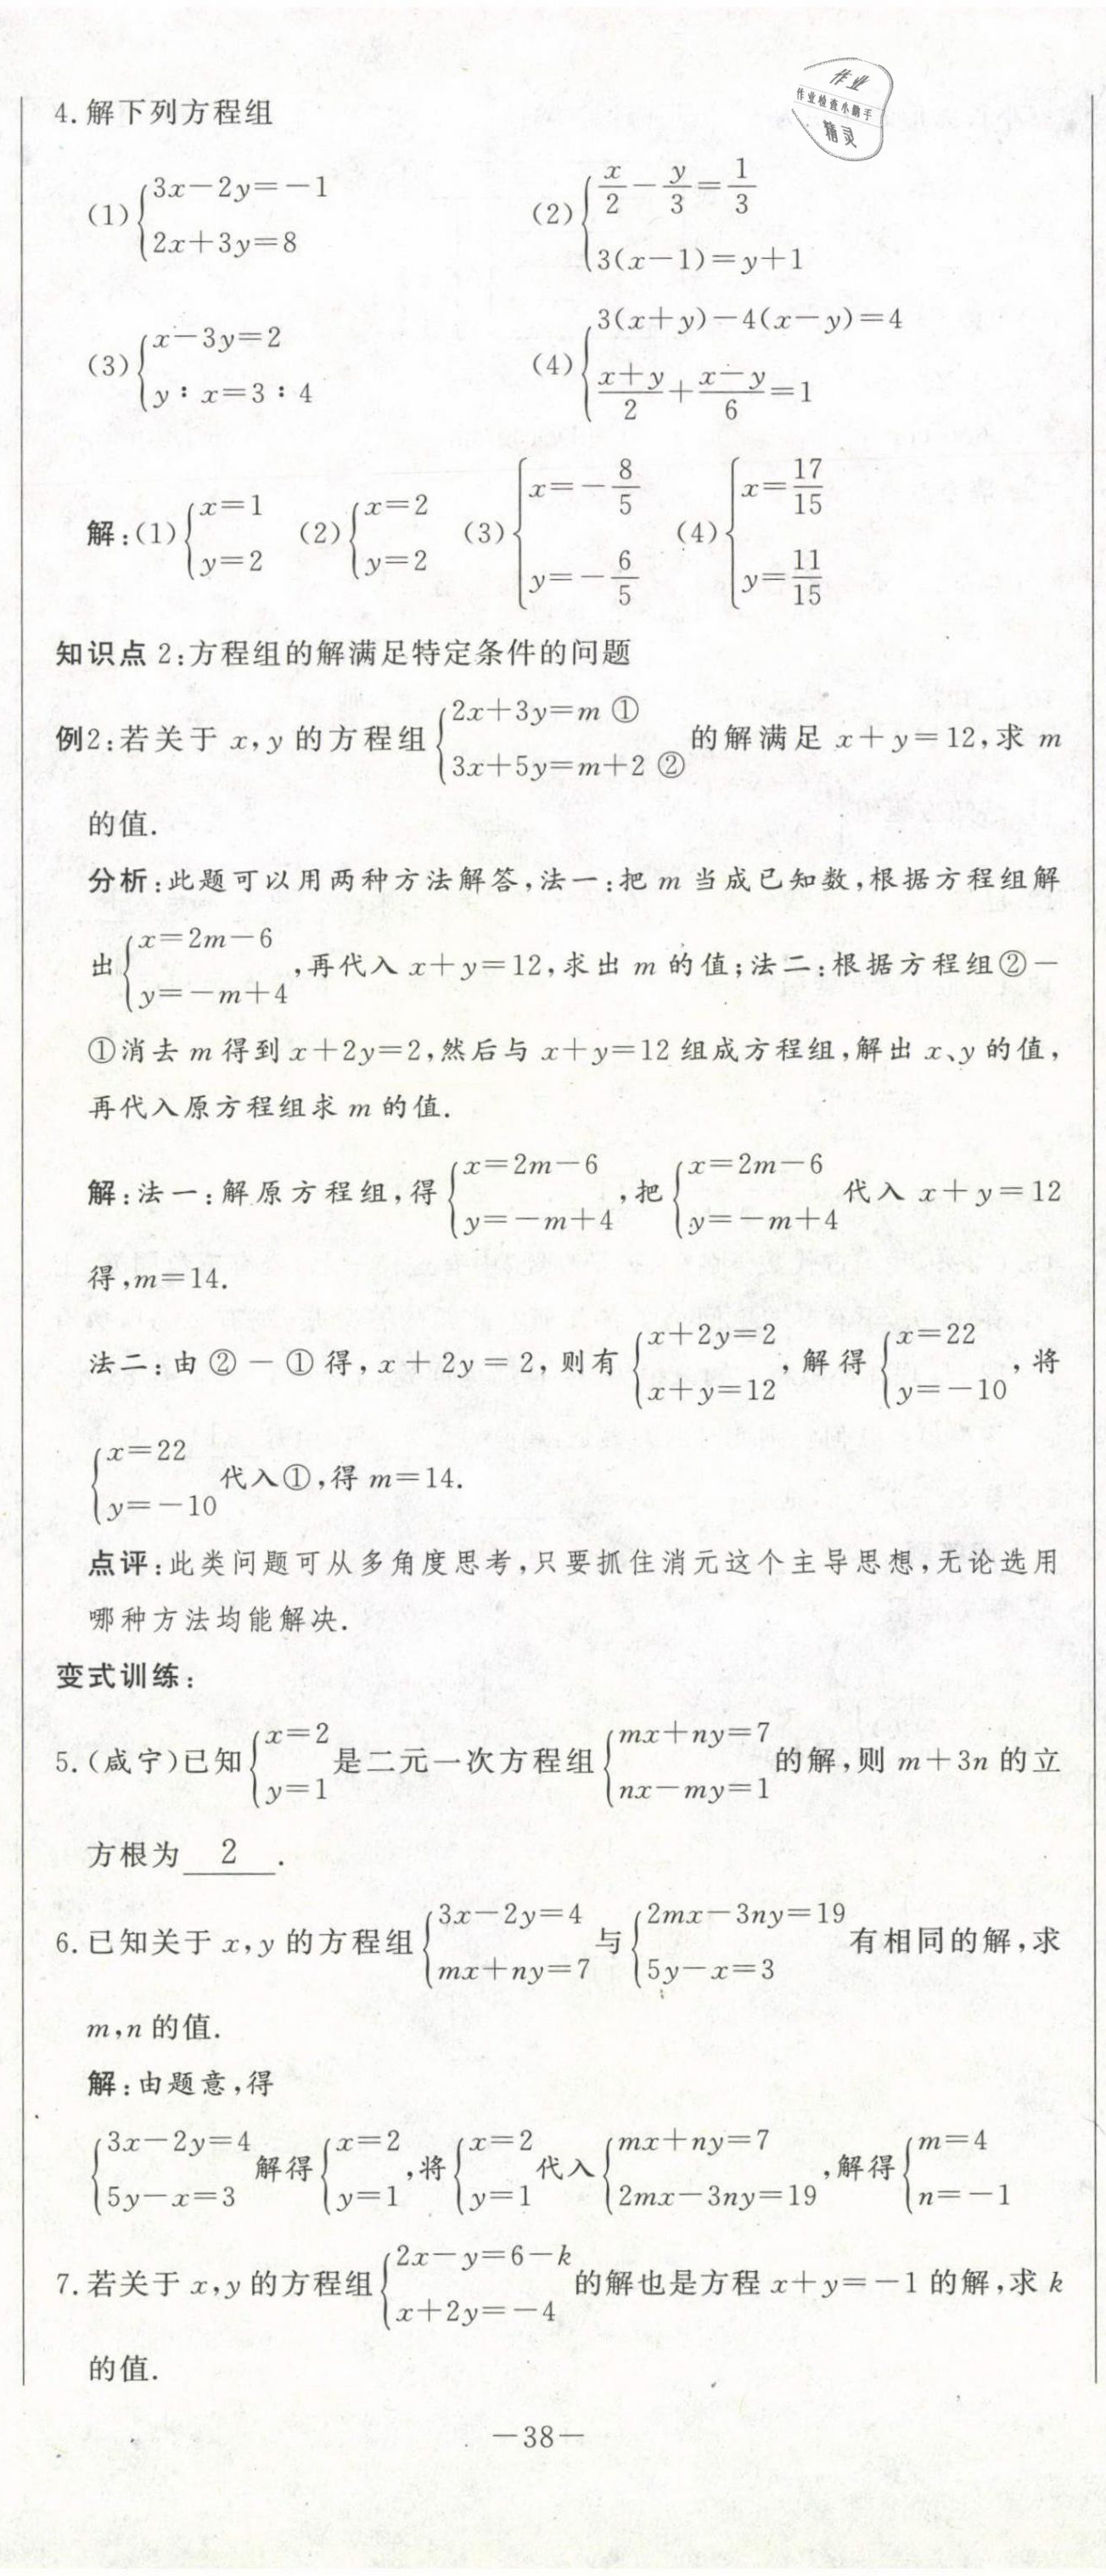 作业
作业检查小助手
精灵
4.解下列方程组
(1){3x-2y=-1
2x+3y=8
(2){x/2-y/3=1/3
3(x-1)=y+1
(3){x-3y=2
y:x=3:4
(4){3(x+y)-4(x-y)=4
(x+y)/2+(x-y)/6=1
解:(1){x=1 y=2 (2){x=2 y=2 (3){x=-8/5 y=-6/5 (4){x=17/15 y=11/15
知识点2:方程组的解满足特定条件的问题
例2:若关于x,y的方程组{2x+3y=m ① 3x+5y=m+2 ②的解满足x+y=12,求m
的值.
分析:此题可以用两种方法解答,法一:把m当成已知数,根据方程组解
出{x=2m-6 y=-m+4,再代入x+y=12,求出m的值;法二:根据方程组②-
①消去m得到x+2y=2,然后与x+y=12组成方程组,解出x、y的值,
再代入原方程组求m的值.
解:法一:解原方程组,得{x=2m-6 y=-m+4,把{x=2m-6 y=-m+4代入x+y=12
得,m=14.
法二:由②-①得,x+2y=2,则有{x+2y=2 x+y=12,解得{x=22 y=-10,将
{x=22 y=-10代入①,得m=14.
点评:此类问题可从多角度思考,只要抓住消元这个主导思想,无论选用
哪种方法均能解决.
变式训练:
5.(咸宁)已知{x=2 y=1是二元一次方程组{mx+ny=7 nx-my=1的解,则m+3n的立
方根为 2 .
6.已知关于x,y的方程组{3x-2y=4 mx+ny=7与{2mx-3ny=19 5y-x=3有相同的解,求
m,n的值.
解:由题意,得
{3x-2y=4 5y-x=3解得{x=2 y=1,将{x=2 y=1代入{mx+ny=7 2mx-3ny=19,解得{m=4 n=-1
7.若关于x,y的方程组{2x-y=6-k x+2y=-4的解也是方程x+y=-1的解,求k
的值.
-38-